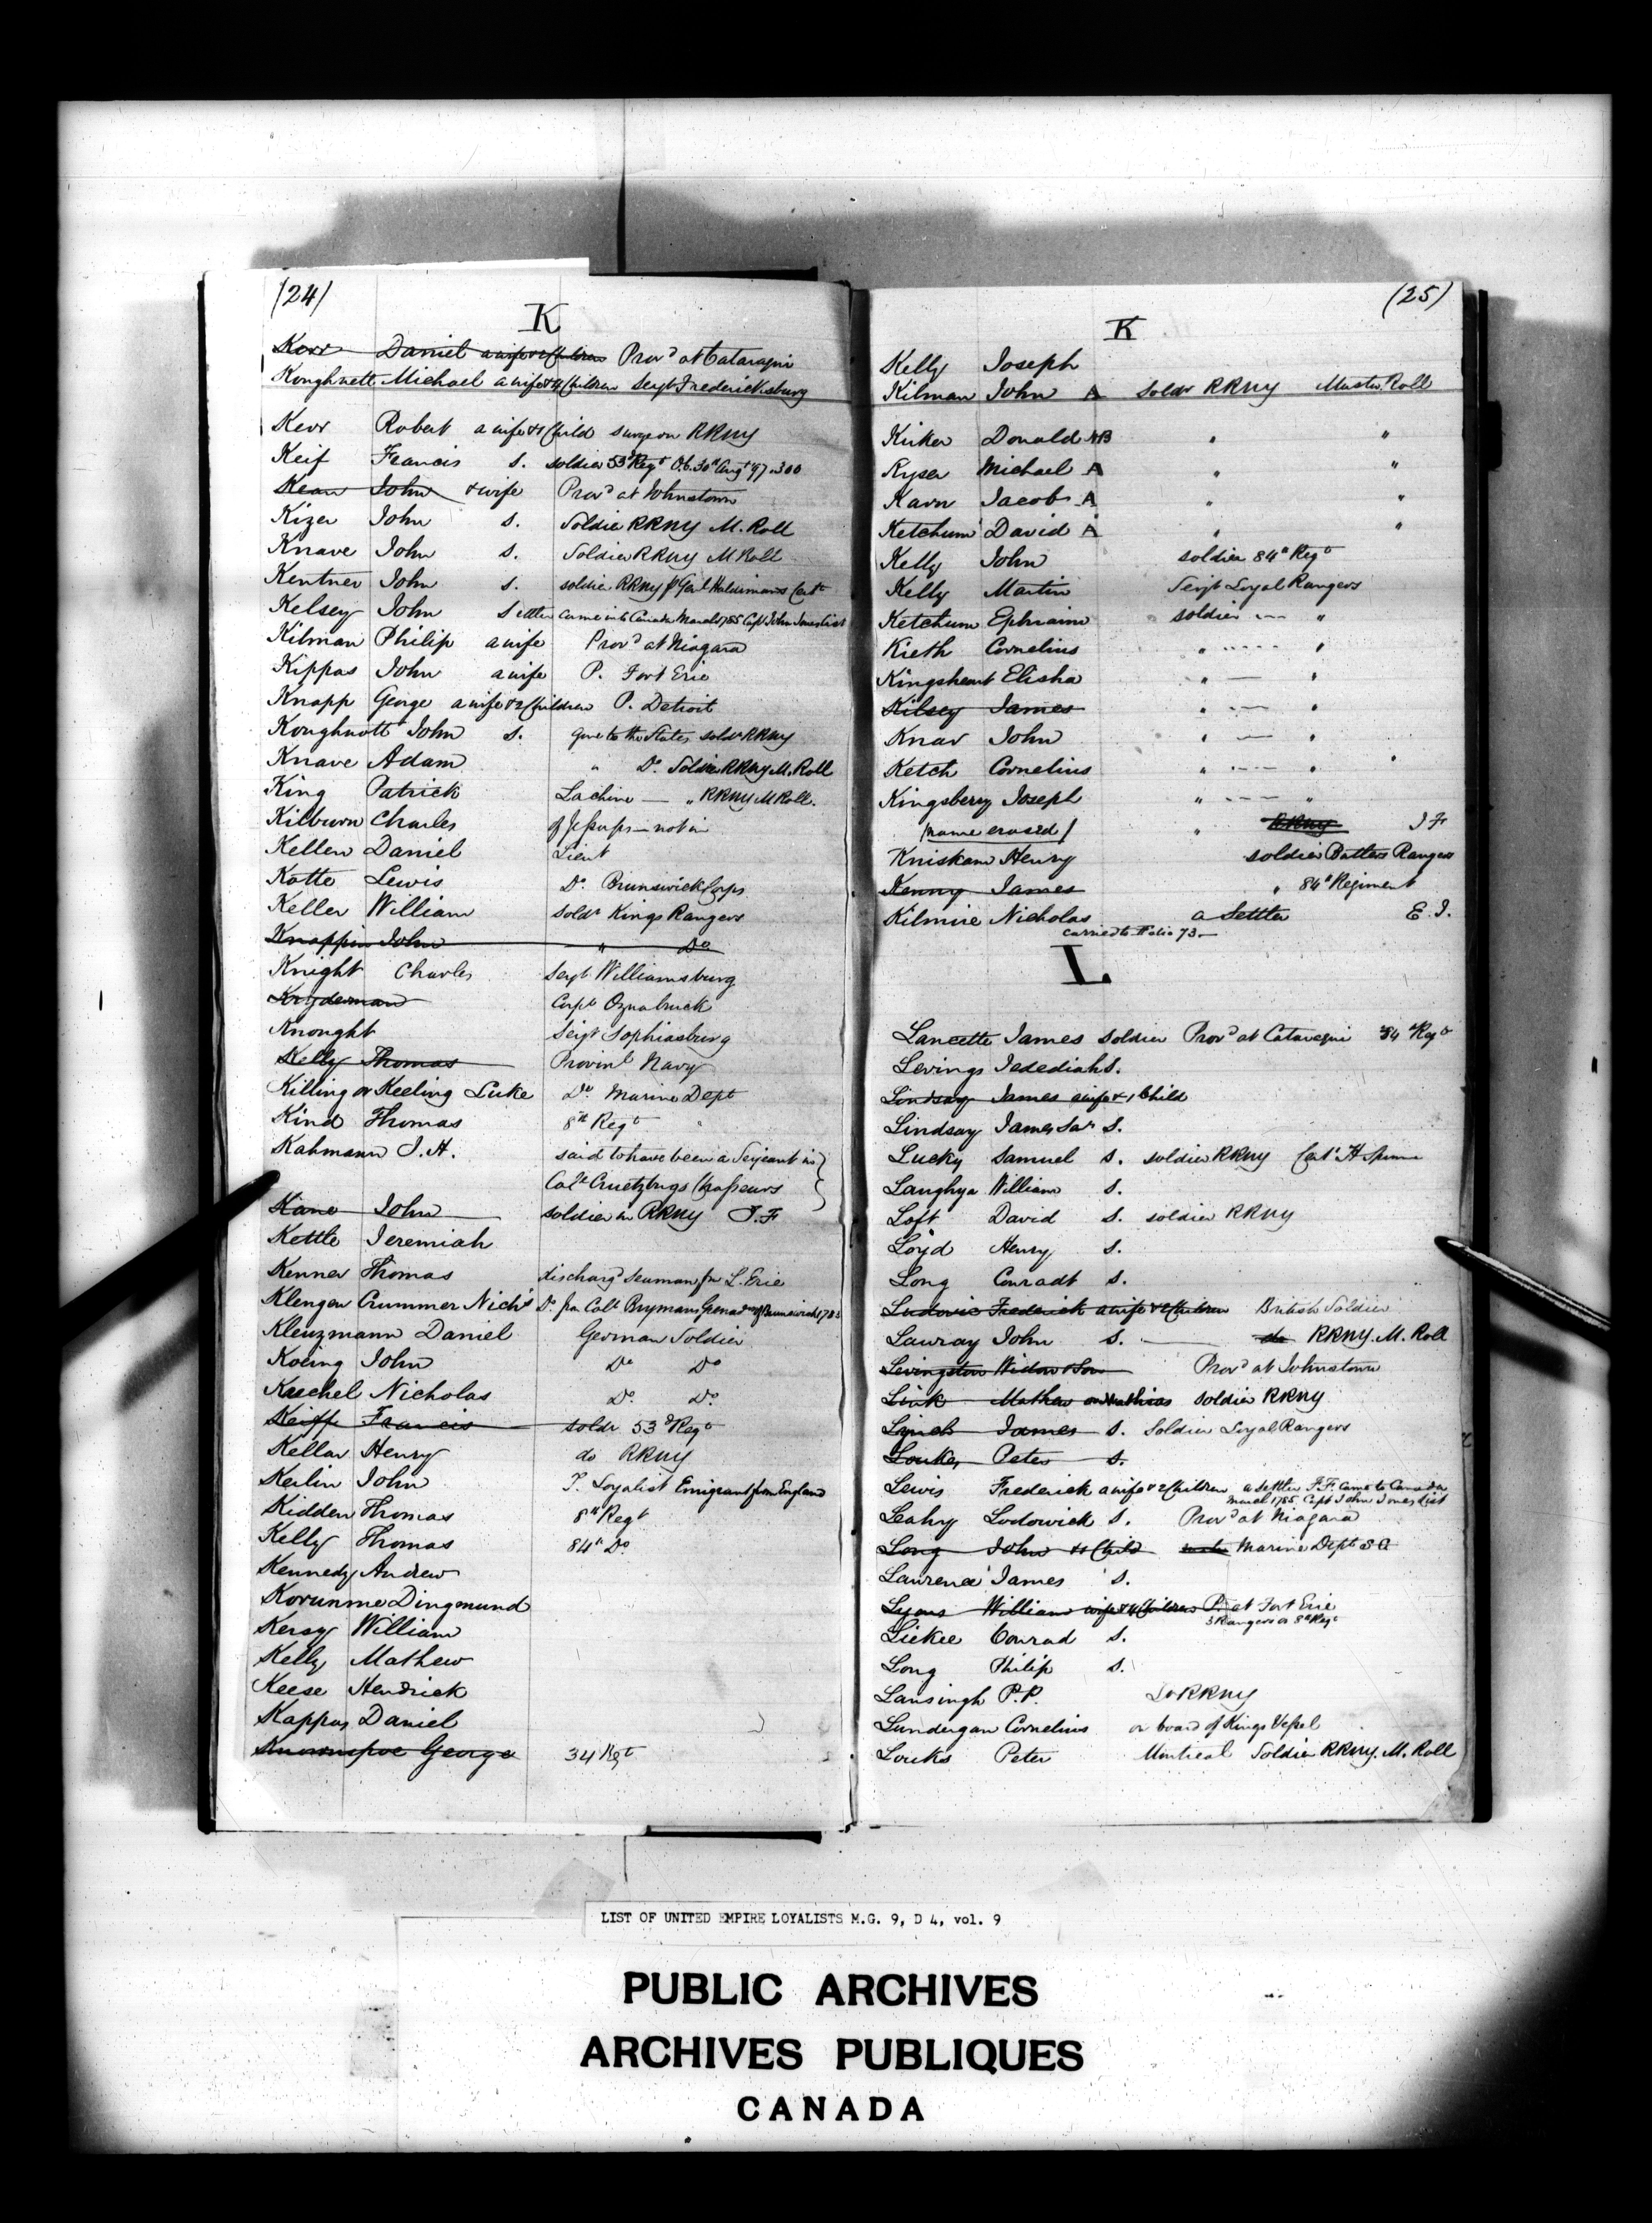 (24)
K
Kerr Daniel a wife & 2 Children Prov^d at Cataraqui
Koughnett Michael a wife & 4 Children Serjt Fredericksburg
Kerr Robert a wife & 1 Child surgeon RRNY
Keif Francis S. soldier 53^d Reg^t Ob. 30^th Aug^t 97. 300
Kean John & wife Prov^d at Johnstown
Kizer John S. Soldier RRNY M. Roll
Knave John S. Soldier RRNY M Roll
Kentner John S. soldier RRNY p Gen^l Haldimands Cert^e
Kelsey John Settler came into Canada March 1785 Capt John Jones List
Kilman Philip a wife Prov^d at Niagara
Kippas John a wife P. Fort Erie
Knapp George a wife & 2 Children P. Detroit
Koughnott John S. gone to the States sold^r RRNY
Knave Adam " D^o. Soldier RRNY M. Roll
King Patrick Lachine — " RRNY M Roll.
Kilburn Charles of Jessups — not in
Kellen Daniel Lieut
Kotte Lewis D^o. Brunswick Corps
Keller William Sold^r Kings Rangers
Knappin John " D^o
Knight Charles Serjt Williamsburg
Kryderman Corp^l Oznabruck
Knought Serjt Sophiasburg
Kelly Thomas Provin^l Navy
Killing or Keeling Luke D^o Marine Dept
Kind Thomas 8^th Reg^t "
Kahmann J. H. said to have been a Serjeant in
Col^l Cruetzburgs Chasseurs
Kane John soldier in RRNY J. F
Kettle Jeremiah
Kenner Thomas discharg^d seaman fm L. Erie
Klengen Crummer Nich^s D^o. fm Col^l Brymans Grenad^rs of Brunswick 1783
Kleuzmann Daniel German Soldier
Koeing John D^o D^o
Kuchel Nicholas D^o. D^o.
Keiff Francis soldr 53^d Reg^t
Kellar Henry do RRNY
Keilin John T. Loyalist Emigrant from England
Kidden Thomas 8^th Reg^t
Kelly Thomas 84^th D^o.
Kennedy Andrew
Korunme Dingmund
Kersy William
Kelly Mathew
Keese Hendrick
Kappus Daniel
George 34 Reg^t
(25)
K
Kelly Joseph
Kilman John A Soldr RRNY Muster Roll
Kirker Donald NB " "
Kyser Michael A " "
Karn Jacob A " "
Ketchum David A " "
Kelly John soldier 84^th Reg^t
Kelly Martin Serjt Loyal Rangers
Ketchum Ephraim soldier --- "
Kieth Cornelius " ---- "
Kingsheart Elisha " — "
Kilsey James " --- "
Knav John " — "
Ketch Cornelius " --- "
Kingsberry Joseph " --- "
(name erased) " RRNY J F
Kniskern Henry soldier Butlers Rangers
Kenny James " 84^th Regiment
Kilmire Nicholas a Settler E. J.
carried to Folio 73 —
L
Lancette James soldier Prov^d at Cataraqui 84^th Reg^t
Levings Jedediah S.
Lindsay James a wife & 1 Child
Lindsay James Sen^r S.
Lucky Samuel S. soldier RRNY Cert^e H Spencer
Laughya William S.
Loft David S. soldier RRNY
Loyd Henry S.
Long Conradt S.
Ludovic Frederick a wife & 2 Children British Soldier
Lauray John S. — do RRNY. M. Roll
Levingston Widow & Son Prov^d at Johnstown
Link Mathew or Mathias soldier RRNY
Lynch James S. Soldier Loyal Rangers
Louke, Peter S.
Lewis Frederick a wife & 2 Children a Settler J. F. Came to Canada
March 1785. Capt John Jones List
Leahy Lodowick S. Prov^d at Niagara
Long John & 1 Child Marine Dept S G
Lawrence James S.
Lyons William wife & 4 Children P. at Fort Erie
3 Rangers or 8^th Reg^t
Lickee Conrad S.
Long Philip S.
Lansingh P. P. Lt RRNY
Lundergan Cornelius on board of Kings Vessel
Louks Peter Montreal Soldier RRNY. M. Roll
LIST OF UNITED EMPIRE LOYALISTS M.G. 9, D 4, vol. 9
PUBLIC ARCHIVES
ARCHIVES PUBLIQUES
CANADA